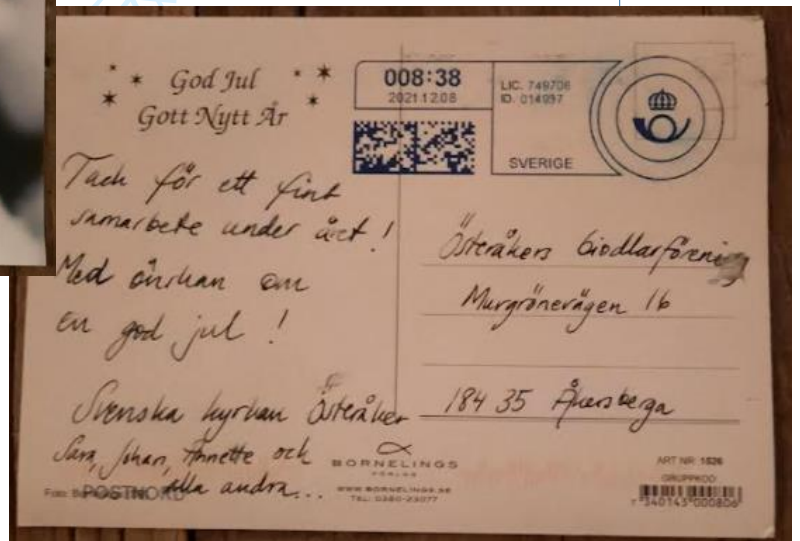 God Jul
Gott Nytt År
008:38
2021.12.08
LIC. 749706
ID. 014937
SVERIGE
Tack för ett fint
samarbete under året!
Med önskan om
en god jul!
Svenska kyrkan Österåker
Sara, Johan, Annette och
alla andra...
Österåkers biodlarförening
Murgrönevägen 16
184 35 Åkersberga
BORNELINGS
FÖRLAG
WWW.BORNELINGS.SE
TEL: 0380-23077
Foto:
POSTNORD
ART NR: 1626
GRUPPKOD
7 340143 000806